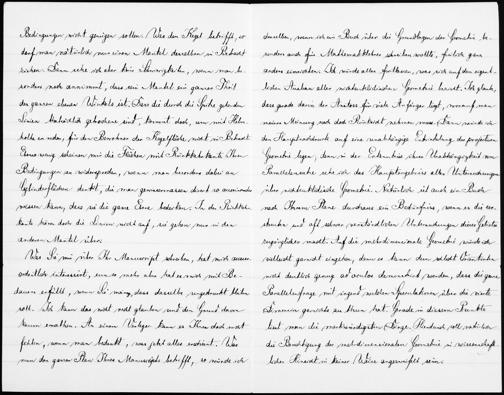 Bedingungen nicht genügen sollen. Was den Kegel betrifft, so
darf man natürlich nur einen Mantel desselben in Betracht
ziehen. Dann sehe ich aber kein Schwierigkeiten, wenn man be-
sonders noch annimmt, dass sein Mantel ein ganzer Theil
der ganzen ebenen Winkel ist. Dass die durch die Spitze gehenden
Linien thatsächlich gebrochene sind, kommt doch, um mit Helm-
holtz zu reden, für den Bewohner der Kegelfläche nicht in Betracht.
Ebensowenig scheinen mir die Flächen mit Rückkehrkante Ihren
Bedingungen zu widersprechen, wenn man besonders dabei an
Cylinderflächen denkt, die man gewissermassen so
kann, dass sie die ganze Ebene bedecken. In der Rückkehr-
kante hören doch die Linien nicht auf, sie gehen nur in den
anderen Mantel über.
Was Sie mir über Ihr Manuscript schreiben, hat mich ausser-
ordentlich interessiert, um so mehr aber hat es mich mit Be-
dauern erfüllt, wenn Sie meinen, dass dasselbe ungedruckt bleiben
soll. Ich kann das nicht recht glauben und den Grund davon
kaum errathen. An einem Verleger kann es Ihnen doch nicht
fehlen, wenn man bedenkt, was jetzt alles erscheint. Was
nun den ganzen Plan Ihres Manuscripts betrifft, so würde ich
denselben, wenn ich ein Buch über die Grundlagen der Geometrie be-
sonders auch für Mathematiklehrer schreiben wollte, freilich ganz
anders einrichten. Ich würde alles fortlassen, was sich auf den eigent-
lichen Ausbau aller nichteuklidischen Geometrie bezieht. Ich glaube,
dass gerade darin der Anstoss für viele Anfänger liegt, worauf man
meiner Meinung nach doch Rücksicht nehmen muss. Dann würde ich
den Hauptnachdruck auf eine unabhängige Entwicklung der projectiven
Geometrie legen, denn in der Erkenntnis ihrer Unabhängigkeit vom
Parallelenaxiom sehe ich das Hauptergebnis aller Untersuchungen
über nichteuklidische Geometrie. Natürlich ist auch ein Buch
nach Ihrem Plane durchaus ein Bedürfnis, wenn es die zer-
streuten und oft schwer verständlichen Untersuchungen dieses Gebietes
zugänglicher macht. Auf die mehrdimensionale Geometrie würde ich
vollends garnicht eingehen, denn es kann dem
nicht deutlich genug so ad oculos demonstriert werden, dass die ganze
Parallelenfrage mit irgend welchen Speculationen über die vierte
Dimension garnichts zu thun hat. Gerade in diesem Punkte
hört man die merkwürdigsten Dinge. Hierdurch soll natürlich
die Benutzung der mehrdimensionalen Geometrie in wissenschaft-
licher Hinsicht in keiner Weise angezweifelt sein.